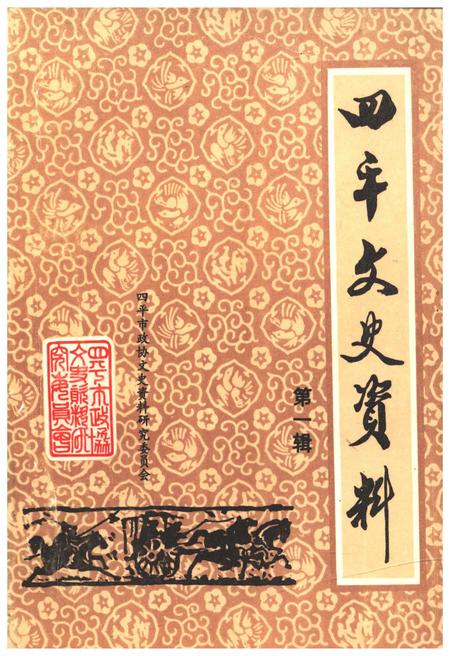 四平文史资料
第一辑
四平市政协文史资料研究委员会
四平市政协
文史资料研
究委员会